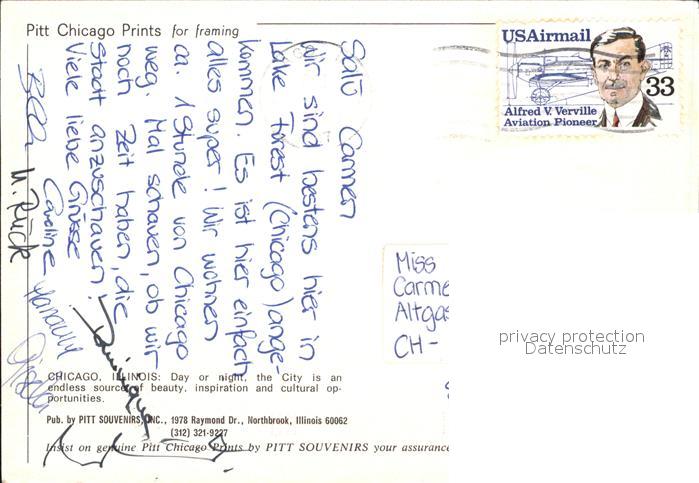 Pitt Chicago Prints for framing
Salü Carmen
Wir sind bestens hier in
Lake Forest (Chicago) ange-
kommen. Es ist hier einfach
alles super! Wir wohnen
ca. 1 Stunde von Chicago
weg. Mal schauen, ob wir
noch Zeit haben, die
Stadt anzuschauen!
Viele liebe Grüsse
Caroline
USAirmail
33
Alfred V. Verville
Aviation Pioneer
Miss
Carme
Altgas
CH-
privacy protection
Datenschutz
CHICAGO, ILLINOIS: Day or night, the City is an
endless source of beauty, inspiration and cultural op-
portunities.
Pub. by PITT SOUVENIRS, INC., 1978 Raymond Dr., Northbrook, Illinois 60062
(312) 321-9227
Insist on genuine Pitt Chicago Prints by PITT SOUVENIRS your assurance